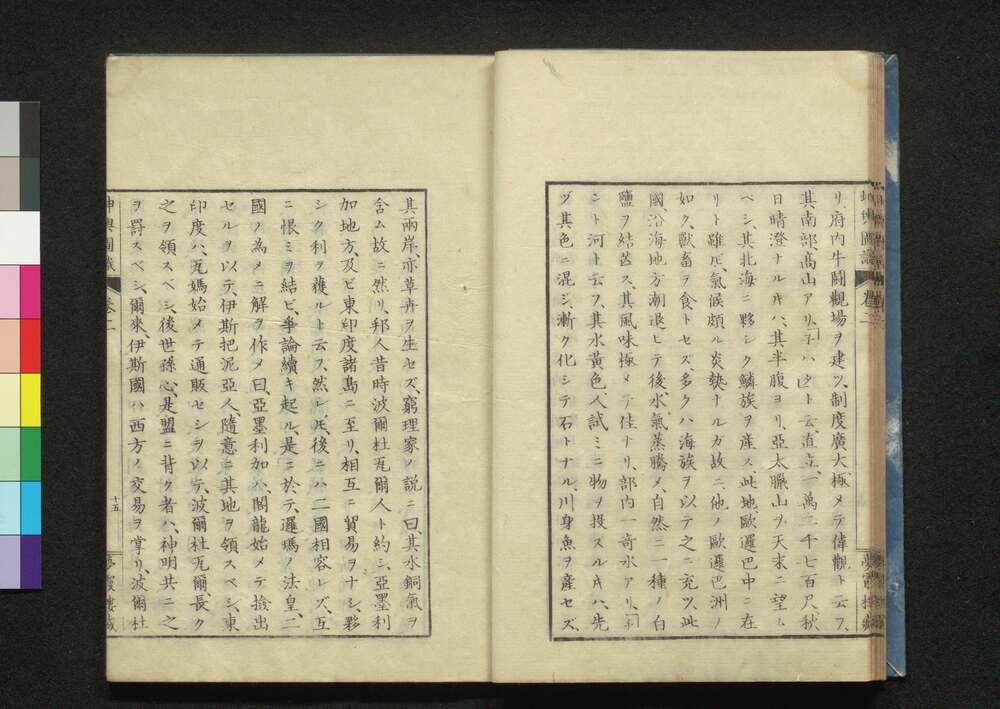 リ、府内牛鬪觀場ヲ建ツ、制度廣大極メテ偉觀ト云フ、
其南部高山アリ、ト云、直立一萬二千七百尺、秋
日晴澄ナルキハ、其半腹ヨリ、亞太臘山ヲ天末ニ望ム
ベシ、其北海ニ夥シク鱗族ヲ産ス、此地歐邏巴中ニ在
リト雖𪜈、氣候頗ル炎𤍠ナルガ故ニ、他ノ歐邏巴洲ノ
如ク、獸畜ヲ食トセズ、多クハ海族ヲ以テ之ニ充ツ、此
國沿海地方潮退ヒテ後、水氣蒸騰メ、自然ニ一種ノ白
鹽ヲ結古ス、其風味極メテ佳ナリ、部内一奇水アリ、
ント河ト云フ、其水黄色、人試ミニ物ヲ投スルキハ、先
ヅ其色ニ混ジ、漸ク化シテ石トナル、川身魚ヲ産セズ、
其兩岸、亦草卉ヲ生セズ、窮理家ノ説ニ曰、其水銅氣ヲ
含ム故ニ然リ、邦人昔時波爾杜瓦爾人ト約シ、亞墨利
加地方、及ビ東印度諸島ニ至リ、相互ニ貿易ヲナシ、夥
シク利ヲ獲ルト云フ、然レ𪜈、後ニハ二國相容レズ、互
ニ恨ミヲ結ビ、爭論續キ起ル、是ニ於テ、邏瑪ノ法皇、二
國ノ為メニ解ヲ作メ曰、亞墨利加ハ、閣龍始メテ撿出
セルヲ以テ、伊斯把泥亞人、隨意ニ其地ヲ領スベシ、東
印度ハ、瓦媽始メテ通販セシヲ以テ、波爾杜瓦爾、長ク
之ヲ領スベシ、後世孫心、是盟ニ背ク者ハ、神明共ニ之
ヲ罸スベシ、爾來伊斯國ハ西方ノ交易ヲ掌リ、波爾杜
坤輿圖識 卷二 十五 夢霞樓藏